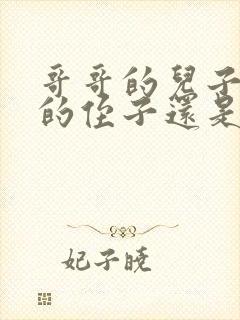 哥哥的兒子
的侄子還是
妃子曉